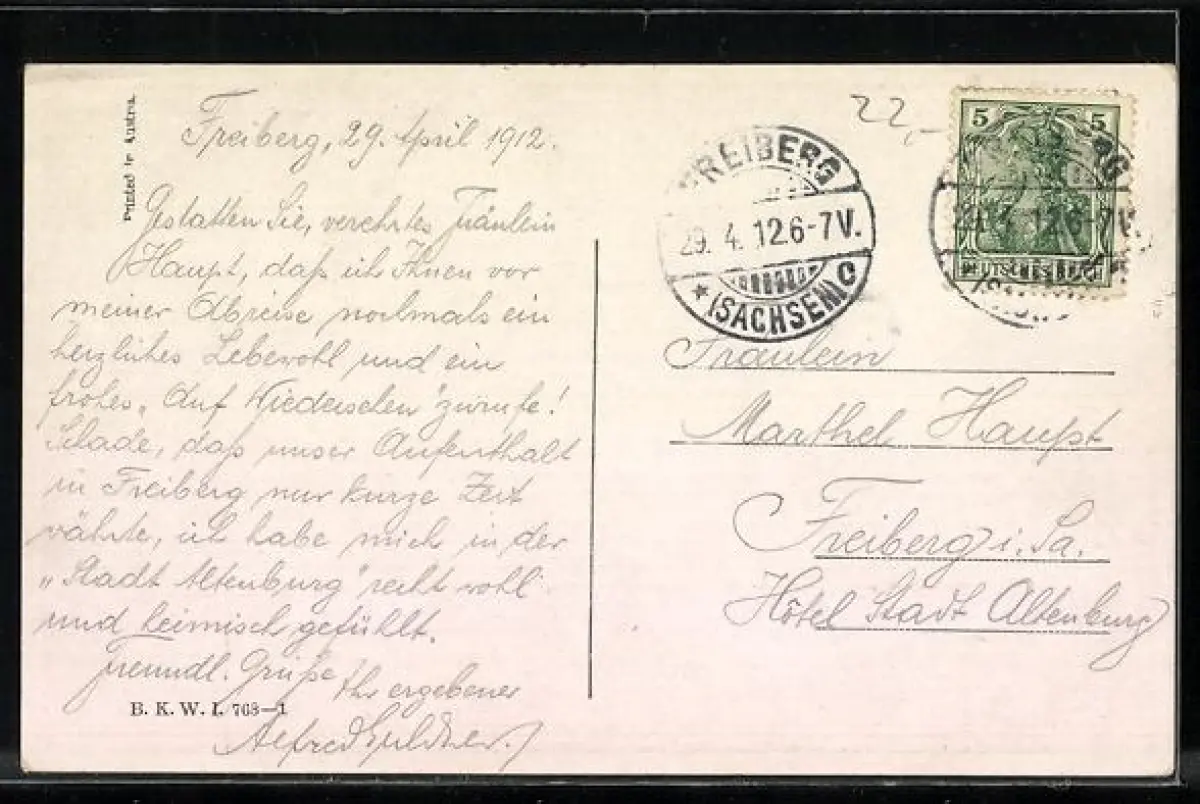 Printed in Austria.
Freiberg, 29. April 1912.
Gestatten Sie, verehrtes Fräulein
Haupt, daß ich Ihnen vor
meiner Abreise nochmals ein
herzliches Lebewohl und ein
frohes „Auf Wiedersehen" zurufe!
Schade, daß unser Aufenthalt
in Freiberg nur kurze Zeit
währte, ich habe mich in der
„Stadt Altenburg" recht wohl
und heimisch gefühlt.
Freundl. Grüße
Ihr ergebener
Alfred
B. K. W. I. 768-1
22,-
FREIBERG
29. 4. 12 6-7V.
* (SACHSEN) C
5 5
DEUTSCHES REICH
29. 4. 12 6-7V.
Fräulein
Marthel Haupt
Freiberg i. Sa.
Hôtel Stadt Altenburg